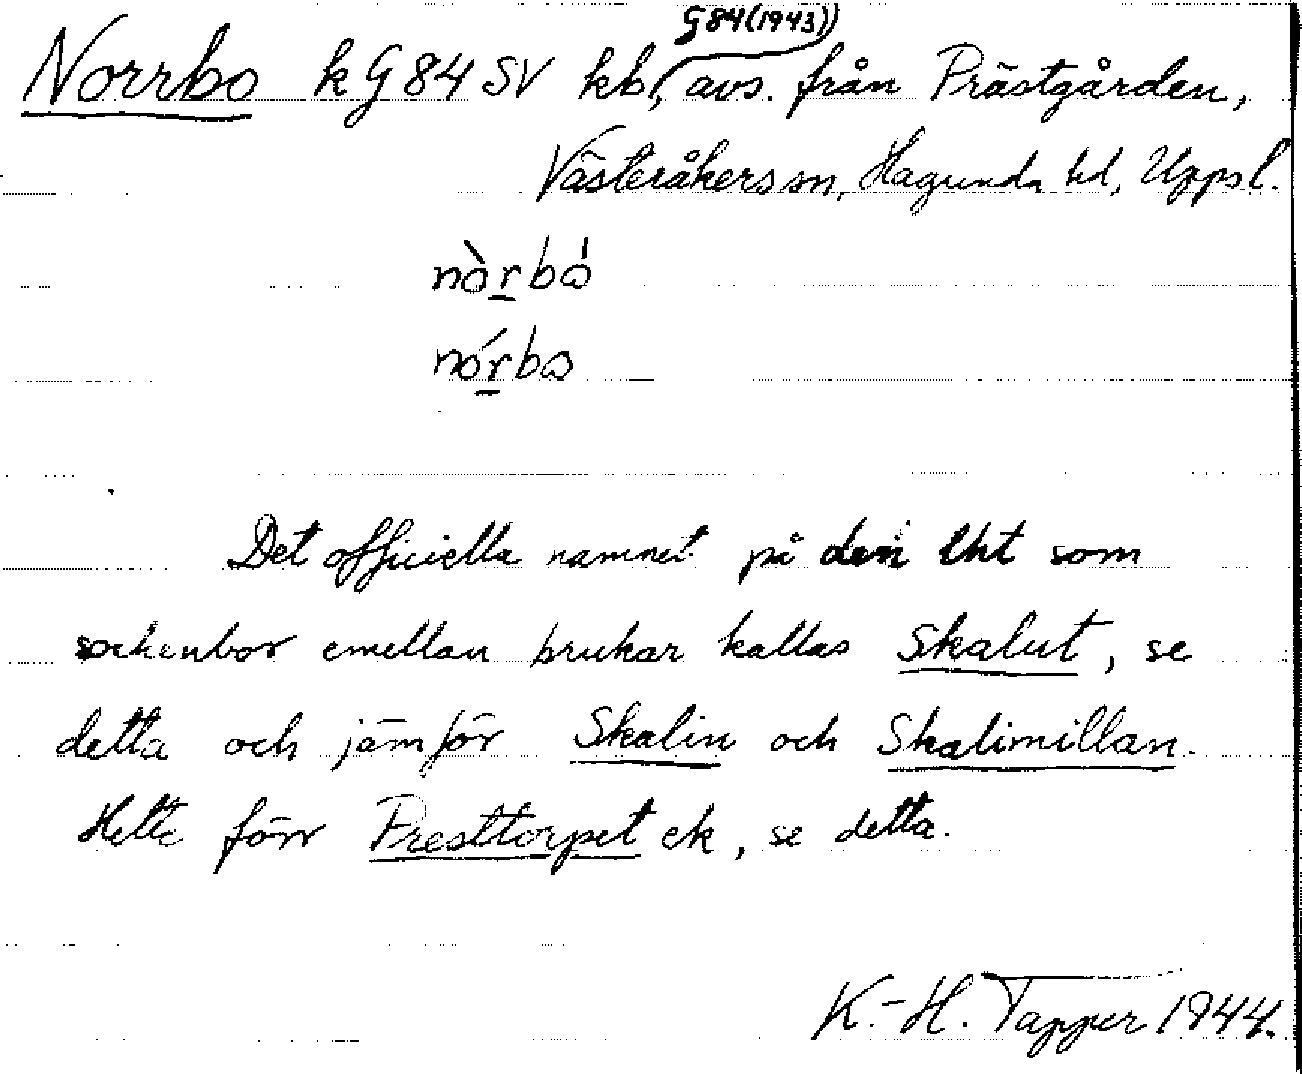 G84(1943))
Norrbo k G84 SV kb, avs. från Prästgården,
Västeråkers sn, Hagunda hd, Uppsl.
nòrbó
nórbo
Det officiella namnet på den lht som
sockenbor emellan brukar kallas Skalut, se
detta och jämför Skalin och Skalimillan.
Hette förr Presttorpet ek, se detta.
K.-H. Tapper 1944.